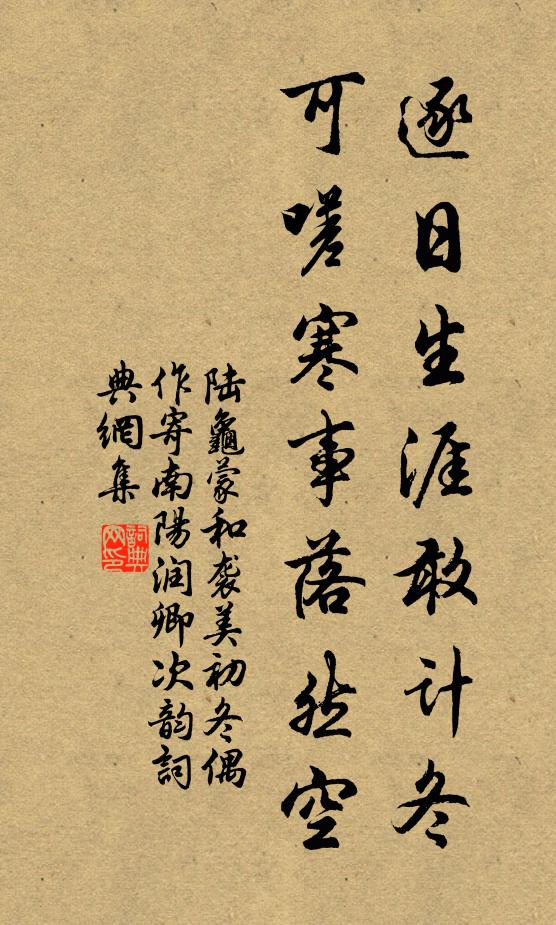 逐日生涯敢计冬
可嗟寒事落然空
陆龜蒙和袭美初冬偶
作寄南陽润卿次韵詞
典網集
詞典
网印